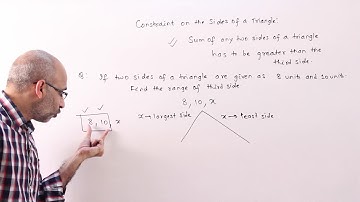 Constraint on the Sides of a Triangle:
✓ Sum of any two sides of a triangle
has to be greater than the
third side.
Q. If two sides of a triangle are given as 8 units and 10 units.
Find the range of third side
8, 10, x
x → largest side
x → least side
✓ ✓
8, 10, x